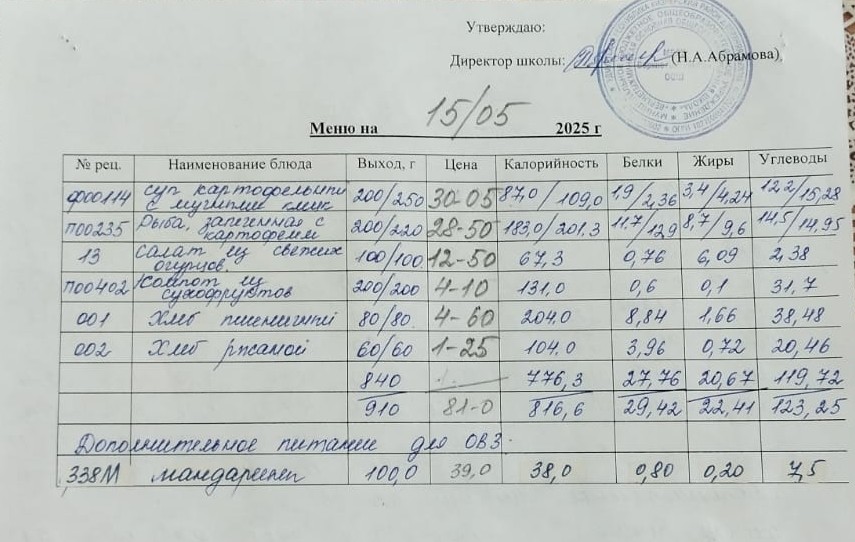 Утверждаю:
Директор школы: (Н.А.Абрамова)
Меню на 15/05 2025 г
№ рец. Наименование блюда Выход, г Цена Калорийность Белки Жиры Углеводы
ф00114 суп картофельный с мучными клик 200/250 30-05 87,0/109,0 1,9/2,36 3,4/4,24 12,2/15,28
п00235 Рыба, запеченная с картофелем 200/220 28-50 183,0/201,3 11,7/129 8,7/9,6 14,5/14,95
13 салат из свежих огурцов. 100/100 12-50 67,3 0,76 6,09 2,38
п00402 Компот из сухофруктов 200/200 4-10 131,0 0,6 0,1 31,7
001 Хлеб пшеничный 80/80 4-60 204,0 8,84 1,66 38,48
002 Хлеб ржаной 60/60 1-25 104,0 3,96 0,72 20,46
840 776,3 27,76 20,67 119,72
910 81-0 816,6 29,42 22,41 123,25
Дополнительное питание для ОВЗ.
338М мандарины 100,0 39,0 38,0 0,80 0,20 7,5